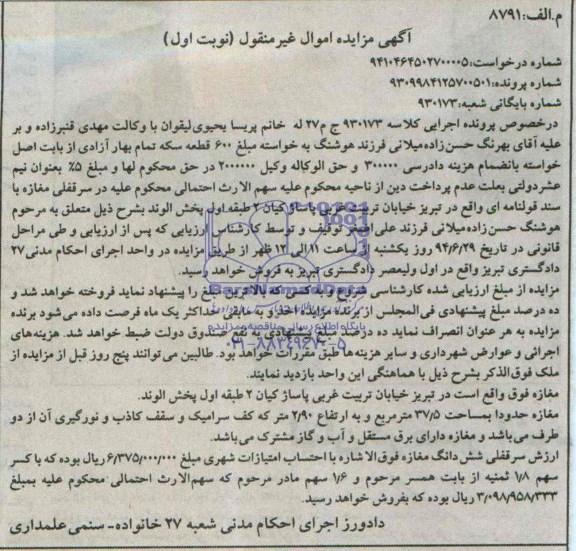 م.الف:۸۷۹۱
آگهی مزایده اموال غیرمنقول (نوبت اول)
شماره درخواست:۹۴۱۰۴۶۴۵۰۲۷۰۰۰۰۵
شماره پرونده:۹۳۰۹۹۸۴۱۲۵۷۰۰۵۰۱
شماره بایگانی شعبه:۹۳۰۱۷۳
درخصوص پرونده اجرایی کلاسه ۹۳۰۱۷۳ ج م۲۷ له خانم پریسا یحیوی‌لیقوان با وکالت مهدی قنبرزاده و بر
علیه آقای بهرنگ حسن‌زاده‌میلانی فرزند هوشنگ به خواسته مبلغ ۶۰۰ قطعه سکه تمام بهار آزادی از بابت اصل
خواسته بانضمام هزینه دادرسی ۳۰۰۰۰۰ و حق الوکاله وکیل ۲۰۰۰۰۰۰ در حق محکوم لها و مبلغ ۵٪ بعنوان نیم
عشردولتی بعلت عدم پرداخت دین از ناحیه محکوم علیه سهم الارث احتمالی محکوم علیه در سرقفلی مغازه با
سند قولنامه ای واقع در تبریز خیابان تربیت غربی پاساژ کیان ۲ طبقه اول پخش الوند بشرح ذیل متعلق به مرحوم
هوشنگ حسن‌زاده‌میلانی فرزند علی اصغر توقیف و توسط کارشناس ارزیابی که پس از ارزیابی و طی مراحل
قانونی در تاریخ ۹۴/۶/۲۹ روز یکشنبه از ساعت ۱۱ الی ۱۲ ظهر از طریق مزایده در واحد اجرای احکام مدنی ۲۷
دادگستری تبریز واقع در اول ولیعصر دادگستری تبریز به فروش خواهد رسید.
مزایده از مبلغ ارزیابی شده کارشناسی شروع و به کسی که بالاترین مبلغ را پیشنهاد نماید فروخته خواهد شد و
ده درصد مبلغ پیشنهادی فی‌المجلس از برنده مزایده اخذ و به مابقی حداکثر یک ماه فرصت داده می‌شود برنده
مزایده به هر عنوان انصراف نماید ده درصد مبلغ پیشنهادی به نفع صندوق دولت ضبط خواهد شد. هزینه‌های
اجرائی و عوارض شهرداری و سایر هزینه‌ها طبق مقررات خواهد بود. طالبین می‌توانند پنج روز قبل از مزایده از
ملک فوق‌الذکر بشرح ذیل با هماهنگی این واحد بازدید نمایند.
مغازه فوق واقع است در تبریز خیابان تربیت غربی پاساژ کیان ۲ طبقه اول پخش الوند.
مغازه حدودا بمساحت ۳۷/۵ مترمربع و به ارتفاع ۲/۹۰ متر که کف سرامیک و سقف کاذب و نورگیری آن از دو
طرف می‌باشد و مغازه دارای برق مستقل و آب و گاز مشترک می‌باشد.
ارزش سرقفلی شش دانگ مغازه فوق الاشاره با احتساب امتیازات شهری مبلغ ۶/۳۷۵/۰۰۰/۰۰۰ ریال بوده که با کسر
سهم ۱/۸ ثمنیه از بابت همسر مرحوم و ۱/۶ سهم مادر مرحوم که سهم‌الارث احتمالی محکوم علیه بمبلغ
۳/۰۹۸/۹۵۸/۳۳۳ ریال بوده که بفروش خواهد رسید.
دادورز اجرای احکام مدنی شعبه ۲۷ خانواده- سنمی علمداری
پایگاه اطلاع رسانی مناقصه و مزایده
۰۲۱-۸۸۳۴۹۶۷۰-۵